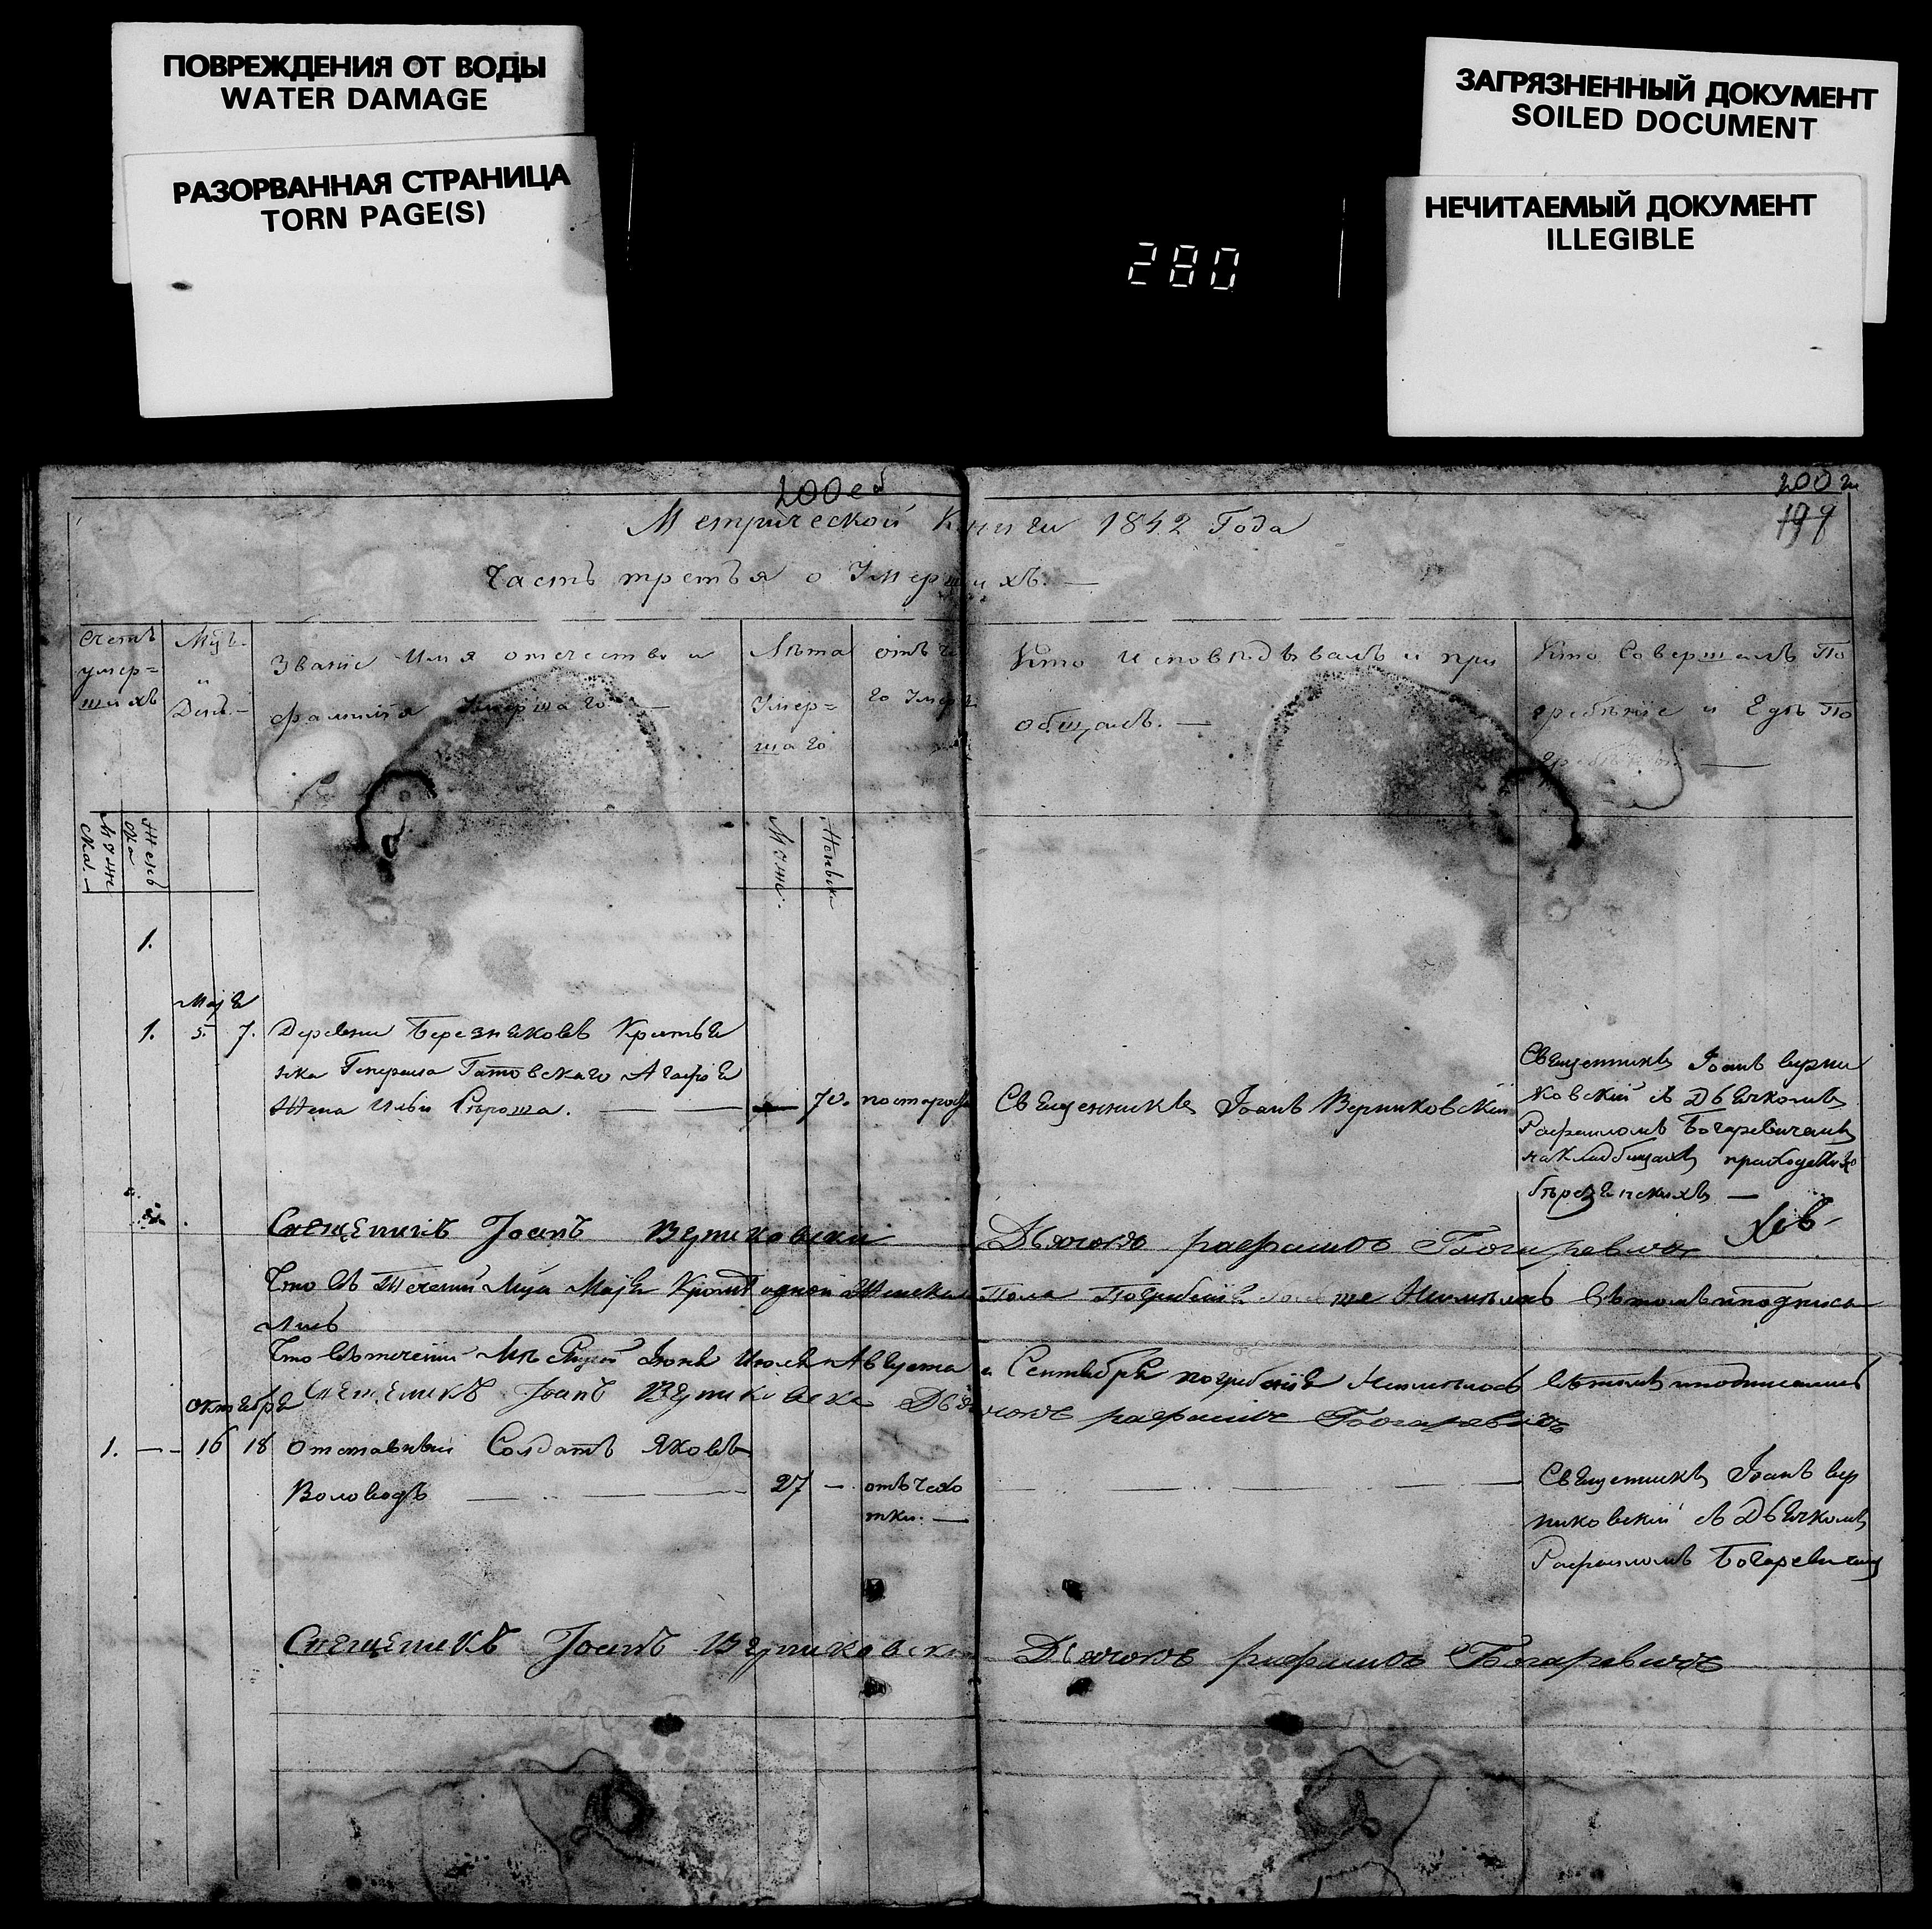 ПОВРЕЖДЕНИЯ ОТ ВОДЫ
WATER DAMAGE
РАЗОРВАННАЯ СТРАНИЦА
TORN PAGE(S)
ЗАГРЯЗНЕННЫЙ ДОКУМЕНТ
SOILED DOCUMENT
НЕЧИТАЕМЫЙ ДОКУМЕНТ
ILLEGIBLE
280
Метрической Книги 1842 Года
Часть третья о Умершихъ.
Счетъ умер=шихъ
Мцъ и День.
Званіе Имя отечество и
фамилія Умершаго
Лѣта
Умер=
шаго
отъ че
го Умер
Кто исповѣдывалъ и при
общалъ.
Кто Совершалъ По
гребѣніе и Гдѣ По
1.
Маја
1. 5. 7. Деревни Березняковъ Крестья
нка Генерала Агафія
Жена Ильи 70. по старос Священникъ Іоанъ Верниковскій
Священникъ Іоанъ Верни
ковскій съ Дьячкомъ
Рафаиломъ Богаревичемъ
на кладбищахъ
Священикъ Іоанъ Верниковски Дьячокъ рафаилъ Богаревичъ
Что въ Теченіи Мца Маја Кромѣ одной Женска Пола Погребеній Неимѣлось Вътомъ иподписа
лись
Что Вътеченіи Іюня Июля Августа и Сентября погребенія Неимѣлось Вътомъ иподписались
октября Священикъ Іоанъ Верниковски Дьячокъ рафаилъ Богаревичъ
1. 16 18 Отставный Солдатъ Яковъ
Воловодъ 27 отъ чахо
тки.
Священникъ Іоанъ Вер
никовскій съ Дьячкомъ
Рафаиломъ Богаревичемъ
Священикъ Іоанъ Верниковски Дьячокъ рафаилъ Богаревичъ